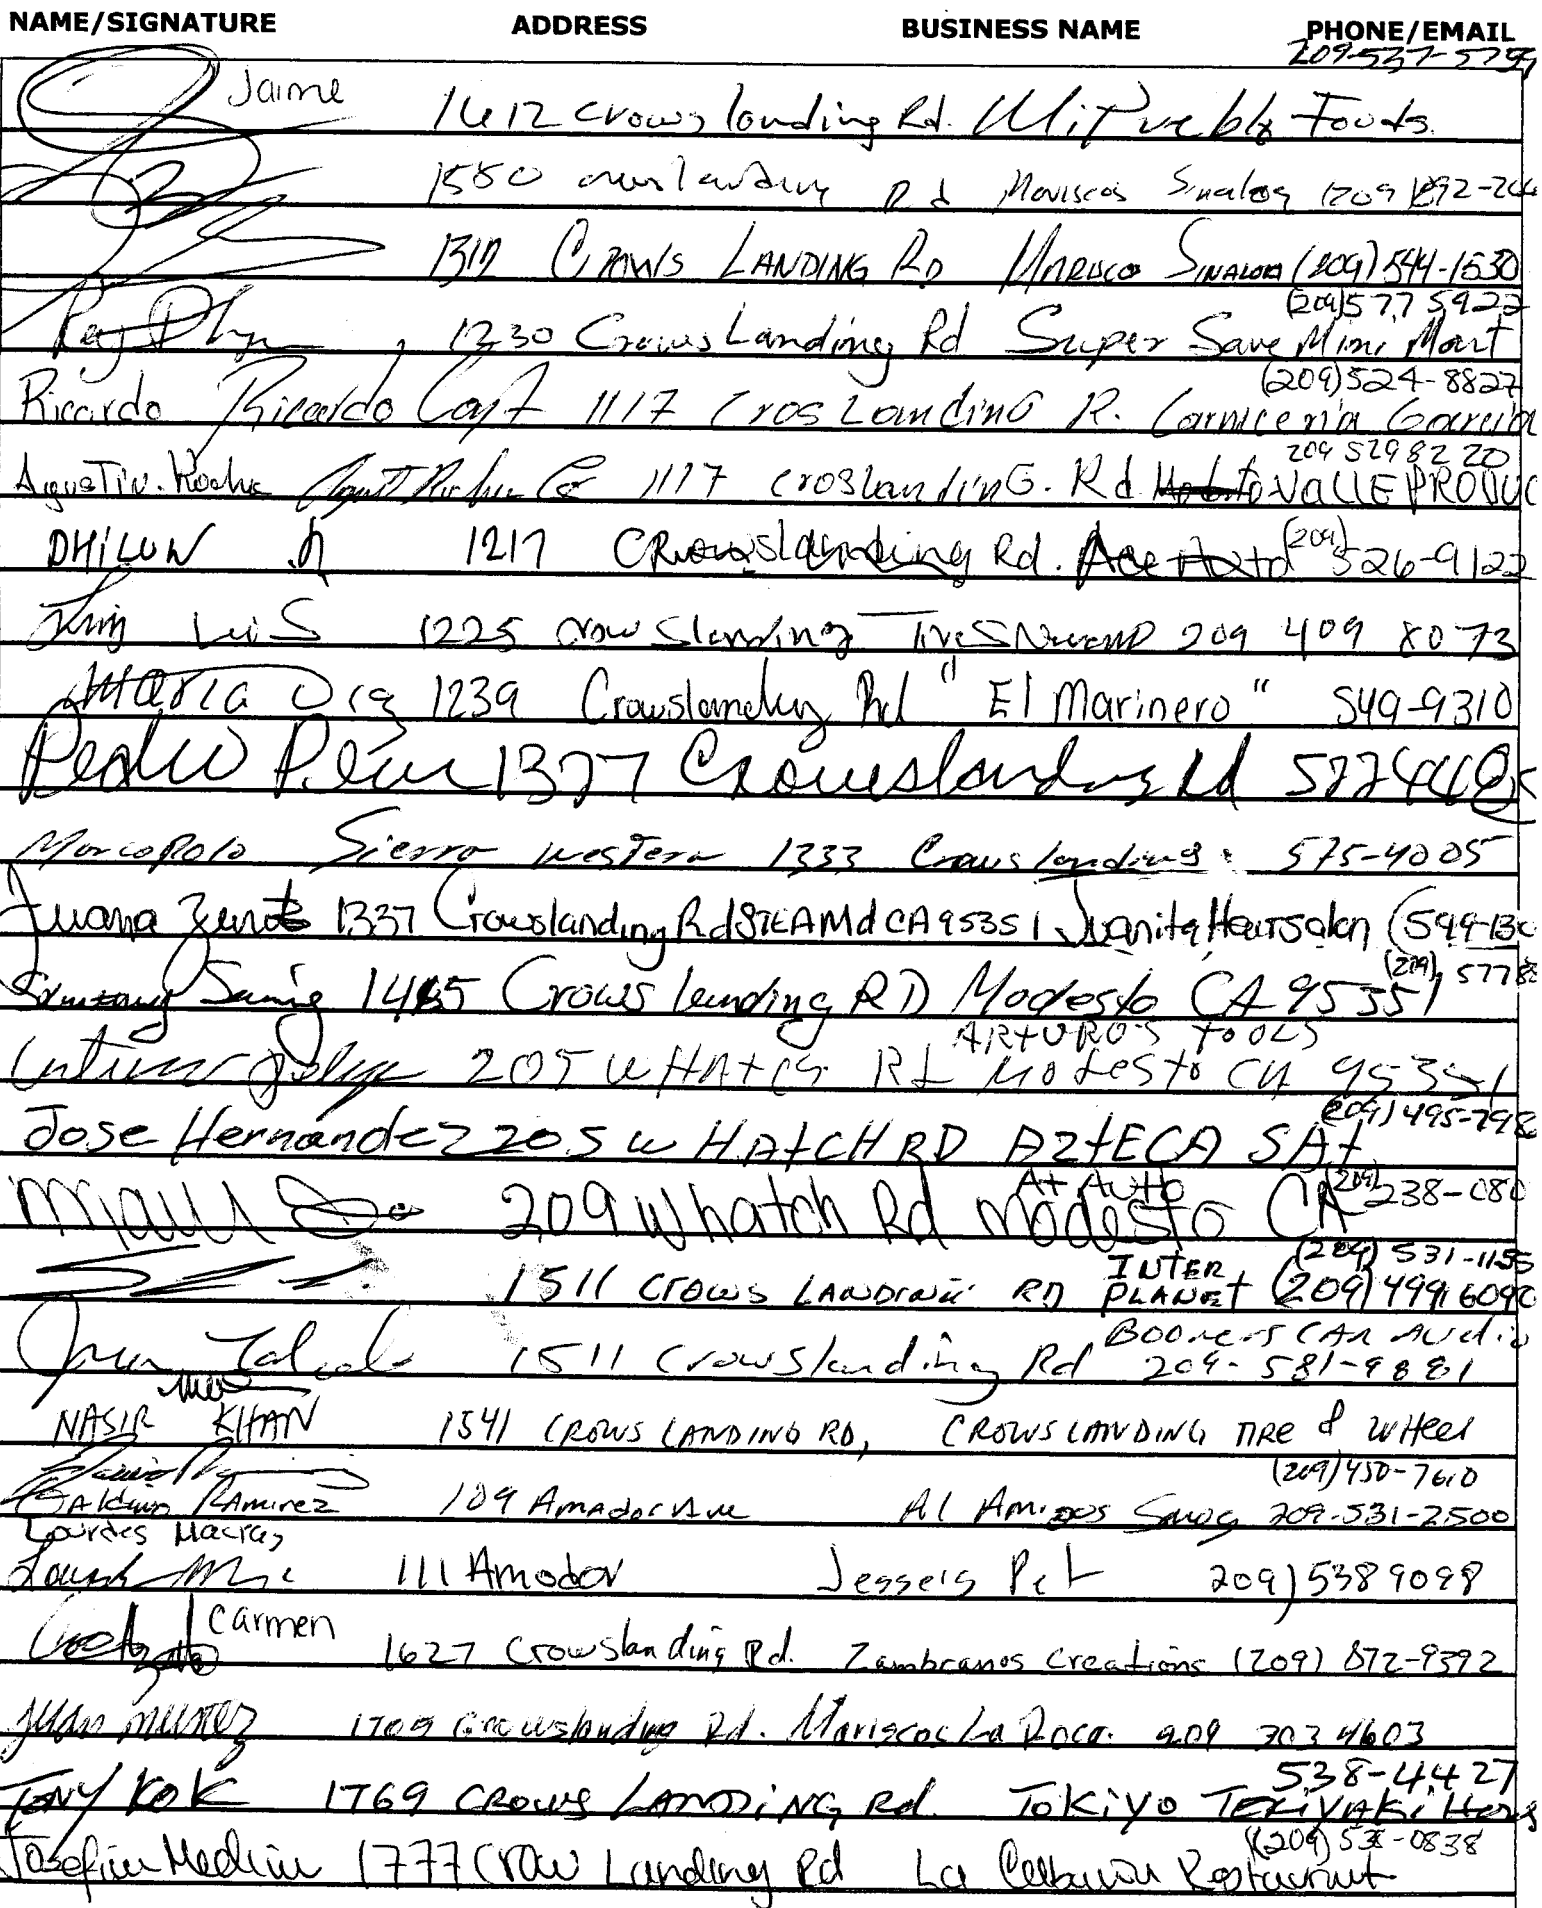 NAME/SIGNATURE ADDRESS BUSINESS NAME PHONE/EMAIL
209-537-5799
Jaime 1612 Crows landing Rd. Mi Pueblo Foods.
1550 Rd Mariscos Sinaloa (209)
1317 CROWS LANDING RD MARISCO SINALOA (209) 544-1530
(209) 577 5922
1230 Crows Landing Rd Super Save Mini Mart
(209) 524-8827
Ricardo Ricardo 1117 Cros Landing R. Carniceria Garcia
209 529 82 20
Agustin. Rocha 1117 croslanding. Rd VALLE PRODUC
DHILLON 1217 Crowslanding Rd. (209) 526-9122
Luis 1225 Crowslanding 209 409 8073
Maria Diaz 1239 Crowslanding Rd "El Marinero" 549-9310
Pedro 1327 Crowslanding Rd
Marcopolo Sierra western 1333 Crows landing. 575-4005
Juana 1337 Crowslanding Rd STE A Md CA 95351 Juanita Hair salon
(209) 5778
1465 Crows landing RD Modesto CA 95351
ARTURO'S TOOLS
205 W HAtCH Rd Modesto CA 95351
(209) 495-798
Jose Hernandez 205 W HAtCH RD AZtECA SAt
At Auto (209) 238-080
209 W hatch Rd modesto CA
INTER (209) 531-1155
1511 CROWS LANDING RD PLANEt (209) 499 6090
Boomers CAR Audio
1511 Crowslanding Rd 209-581-9881
NASIR KHAN 1541 CROWS LANDING RD, CROWS LANDING TIRE & WHEEL
(209) 450-7610
Galdino Ramirez 109 Amador Ave Al Amigos Smog 209-531-2500
Lourdes Macias
111 Amador Jesse's Pet 209) 5389098
Carmen
1627 Crowslanding Rd. Zambranos Creations (209) 872-9392
Juan 1709 Crowslanding Rd. Mariscos La Roca. 209 703 4603
538-4427
TONY KOK 1769 CROWS LANDING Rd. TOKIYO TERIYAKI
(209) 538-0838
Josefina Medina 1777 Crow Landing Rd La Restaurant